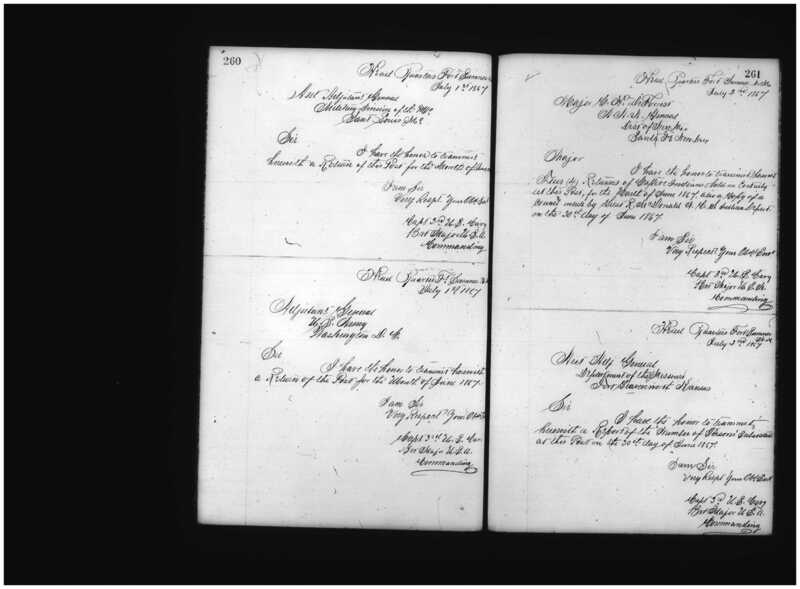 260
Head Quarters Fort Sumner
July 1st 1867
Asst Adjutant General
Military Division of the Mo
Saint Louis Mo
Sir
I have the honor to transmit
herewith a Return of this Post for the Month of June
I am Sir
Very Respt Your Obt Svt
Capt 3rd U.S. Cavy
Bvt Major U.S.A.
Commanding
Head Quarters Ft Sumner
July 1st 1867
Adjutant General
U.S. Army
Washington D.C.
Sir
I have the honor to transmit herewith
a Return of the Post for the Month of June 1867.
I am Sir
Very Respect Your Obt
Capt 3rd U.S. Cav
Bvt Major U.S.A.
Commanding
261
Head Quarters Fort Sumner N.M.
July 2nd 1867
Major C. H. DeForrest
A.A.A. General
Dist of New Mex
Santa Fe New Mex
Major
I have the honor to transmit
Returns of Captive Indians held in Custody
at this Post, for the Month of June 1867. also a Copy of a
Count made by Lieut R. McDonald of the Indian Depart
on the 30th day of June 1867.
I am Sir
Very Respect Your Obt Servt
Capt 3rd U.S. Cavy
Bvt Major U.S.A.
Commanding
Head Quarters Fort Sumner
N.M.
July 2nd 1867
Asst Adjt General
Department of the Missouri
Fort Leavenworth Kansas
Sir
I have the honor to transmit,
herewith a Report of the Number of Persons
at this Post on the 30th day of June 1867.
I am Sir
Very Respt Your Obt Servt
Capt 3rd U.S. Cavy
Bvt Major U.S.A.
Commanding